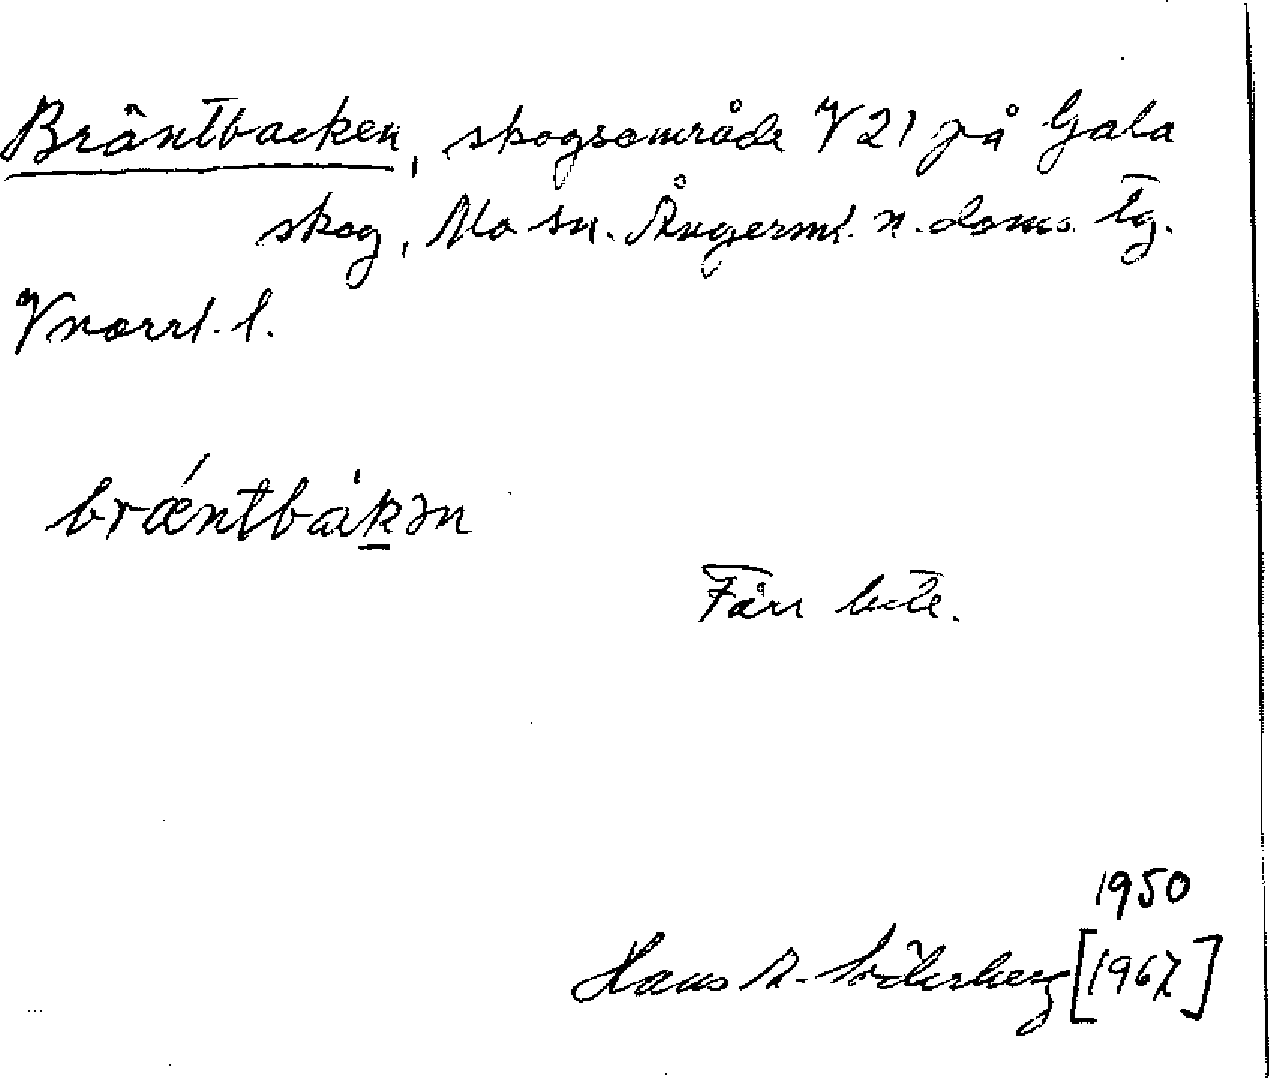 Bräntbacken, skogsområde V21 på Gala
skog, Mo sn. Ångerml. n. doms. tg.
Vnorrl. l.
brǽntbàkən
Fårbete.
1950
Hans A. Söderberg [1967]